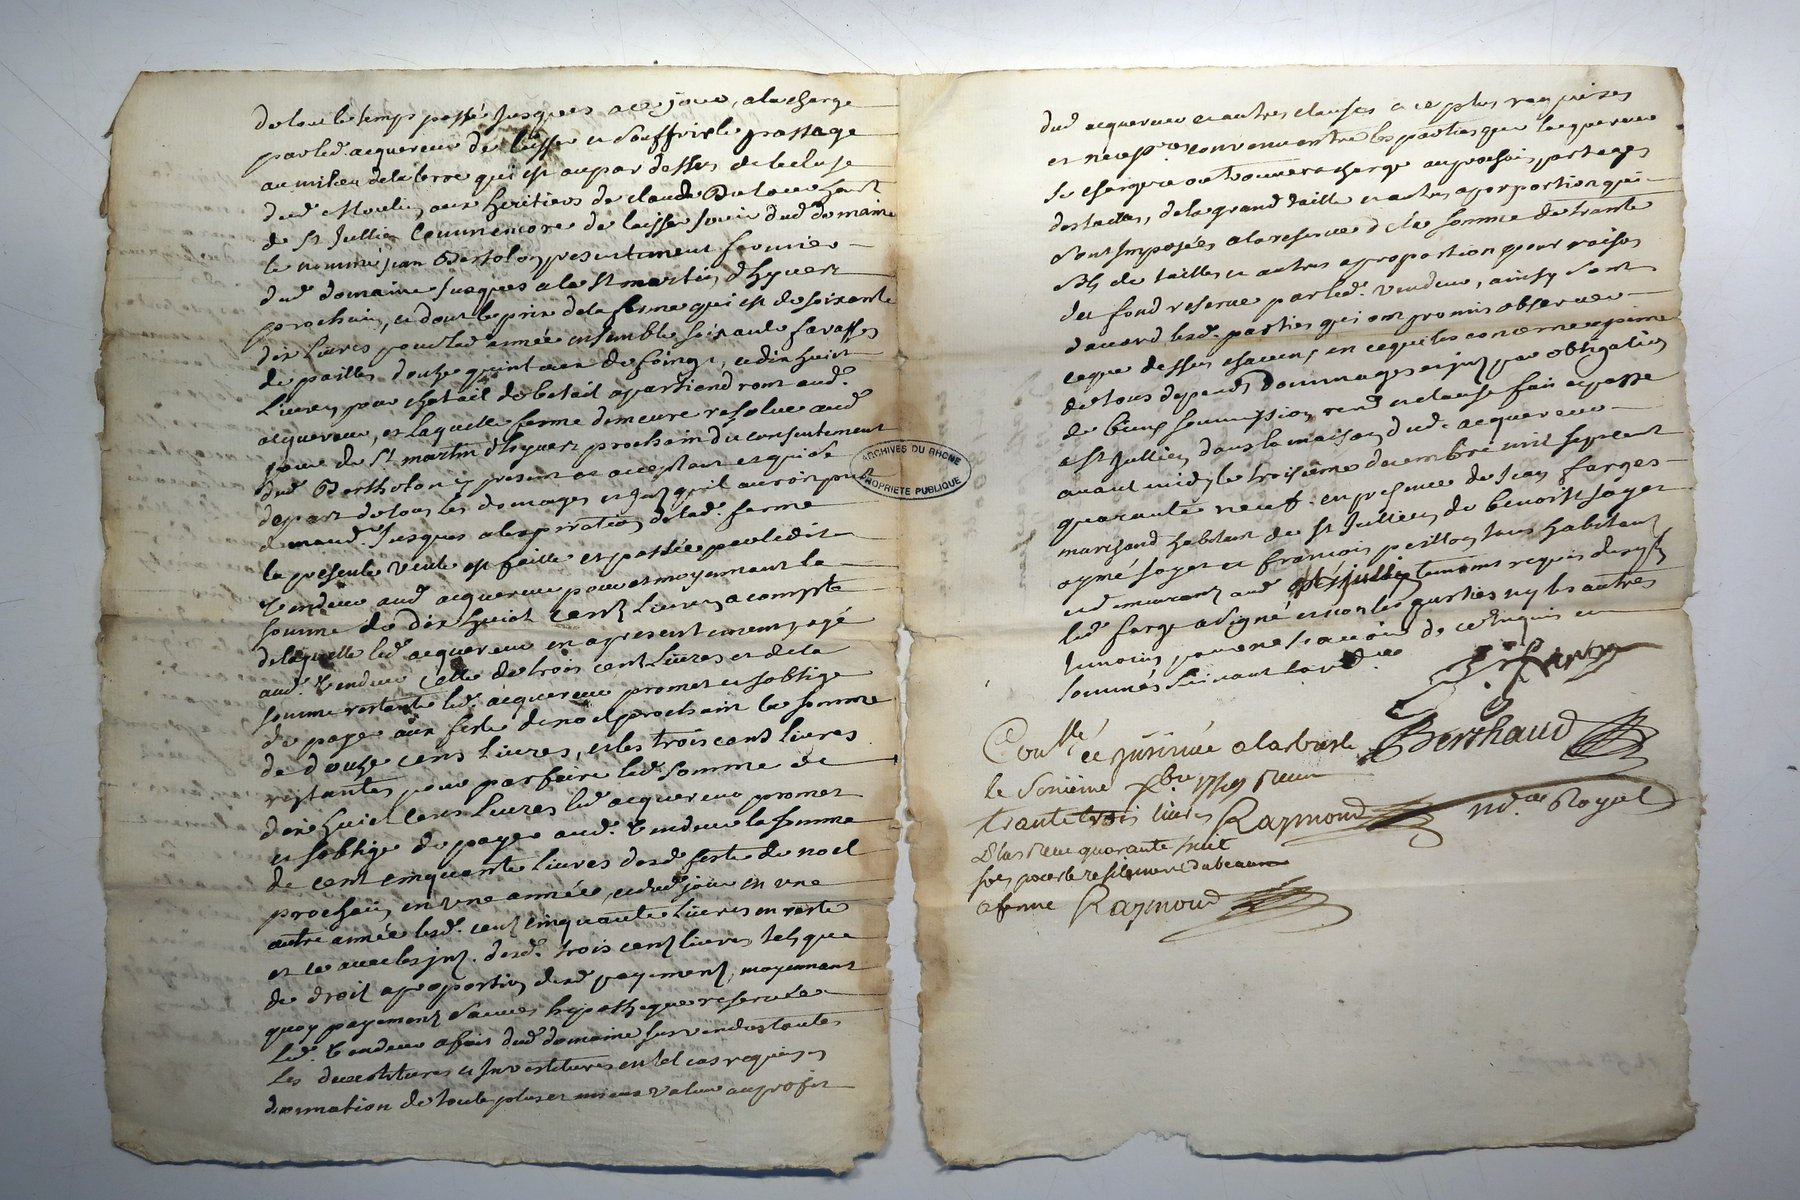 de tout le temps passé jusques a ce jour, a la charge
par led. acquereur de laisser et souffrir le passage
au milieu de la terre qui est au par dessus de lecluse
dud. Moulin, aux heritiers de claude
de St Jullien Comme encore de laisser jouir dud. domaine
le nommé jean Bertolon presentement fermier
dud. domaine jusques a la St martin dhyvert
prochain, et dont le prix de la ferme qui est de soixante
dix Livres pour lad. année ensemble soixante
de pailles, douze quintaux de foings, et dix huit
Livres pour chetail de betail apartiendront aud.
acquereur, et laquelle ferme demeure resolue aud.
jour de St. martin dhyvert prochain du consentement
dud. Bertholon cy present et acceptant et qui se
depart de tous les domages et qu'il auroit peut
demand. jusques a lexpiration de lad. ferme
la presente vente est faitte et passée par ledit
Vendeur aud. acquereur pour et moyennant la
somme de dix huict cents Livres, a compte
de laquelle led. acquereur en a presentement payé
aud. Vendeur celle de trois cent Livres et de la
somme restante led. acquereur promet et soblige
de payer aux feste de noel prochain la somme
de douze cens Livres, et les trois cens livres
restantes pour parfaire lad. somme de
dix huict cens Livres led. acquereur promet
et soblige de payer aud. Vendeur la somme
de cent cinquante livres desd. feste de noel
prochain en une année, et dud. jour en une
autre année lesd. cent cinquante Livres en reste
et ce avec les jnts. desd. trois cents livres tels que
de droit a proportion desd. payements, moyennant
quoy payements sauves hypotheque reservée
led. Vendeur a fait dud. domaine sus vendu toutes
les devestitures et Investitures en tel cas requises
donnation de toute plus et mieux Value au profit
dud. acquereur et autres clauses a ce plus requises
et necess.res convenu entre les parties que lacquereur
se chargera ou trouvera charge au prochain partages
des tailles, de la grand taille et autres a porportion qui
sont Imposées a la reserve de la somme de trante
sols de tailles et autres a proportion pour raison
du fond reservé par led. Vendeur, ainsy sont
daccord lesd. parties qui ont promis observer
ce que dessus chacun en ce qui les concerne a peine
de tous depends dommages et jnts par obligation
de biens soumission renon. et clause fait et passé
a St Jullien, dans la maison, dud. acquereur
avant midy le troisieme decembre mil sept cent
quarante neuf. en presence de Jean farges
marchand habitant de St Jullien, de benoist Joyet
ayné Joyet et francois peillon, tous habitant
et demeurent aud. St jullien temoins requis desq.ls
led. farge a signé et non les parties ny les autres
temoins pour ne scavoir de ce enquis et
sommés suivant lord.ce
J. farge
Berthaud
nd.re Royal
Con.llé et jnsinué a larbresle
le xbre 1749 Receu
trante trois livres Raymond
Plus Receu quarante huit
sols pour le resiliment du beau
a ferme Raymond
ARCHIVES DU RHONE
PROPRIETE PUBLIQUE